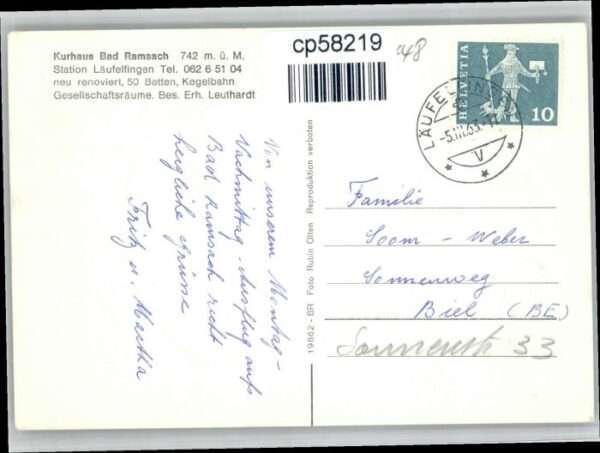 Kurhaus Bad Ramsach 742 m. ü. M.
Station Läufelfingen Tel. 062 6 51 04
neu renoviert, 50 Betten, Kegelbahn
Gesellschaftsräume. Bes. Erh. Leuthardt
cp58219
a48
HELVETIA
10
LÄUFELFINGEN
-5.III.63
V
Von unserem Montag-
Nachmittag-Ausflug aufs
Bad Ramsach recht
herzliche Grüsse
Fritz u.
19862 - BR Foto Rubin Olten Reproduktion verboten
Familie
Soom - Weber
Sonnenweg
Biel (BE)
Sonnenstr 33